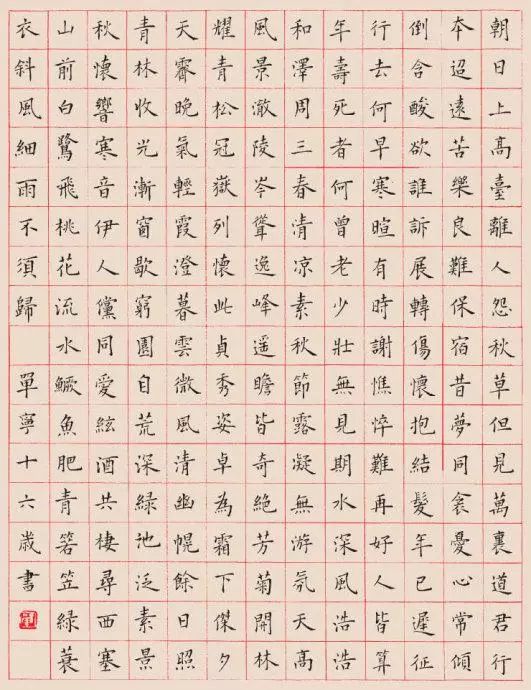 朝日上高臺離人怨秋草但見萬裏道君行
本迢遠苦樂良難保宿昔夢同衾憂心常傾
倒含酸欲誰訴展轉傷懷抱結髮年已遲征
行去何早寒暄有時謝憔悴難再好人皆算
年壽死者何曾老少壯無見期水深風浩浩
和澤周三春清凉素秋節露凝無游氛天高
風景澈陵岑聳逸峰遥瞻皆奇絶芳菊開林
耀青松冠嶽列懷此貞秀姿卓為霜下傑夕
天霽晚氣輕霞澄暮雲微風清幽幌餘日照
青林收光漸窗歇窮園自荒深緑池泛素景
秋懷響寒音伊人儻同愛絃酒共棲尋西塞
山前白鷺飛桃花流水鱖魚肥青箬笠緑蓑
衣斜風細雨不須歸 單寧十六歲書